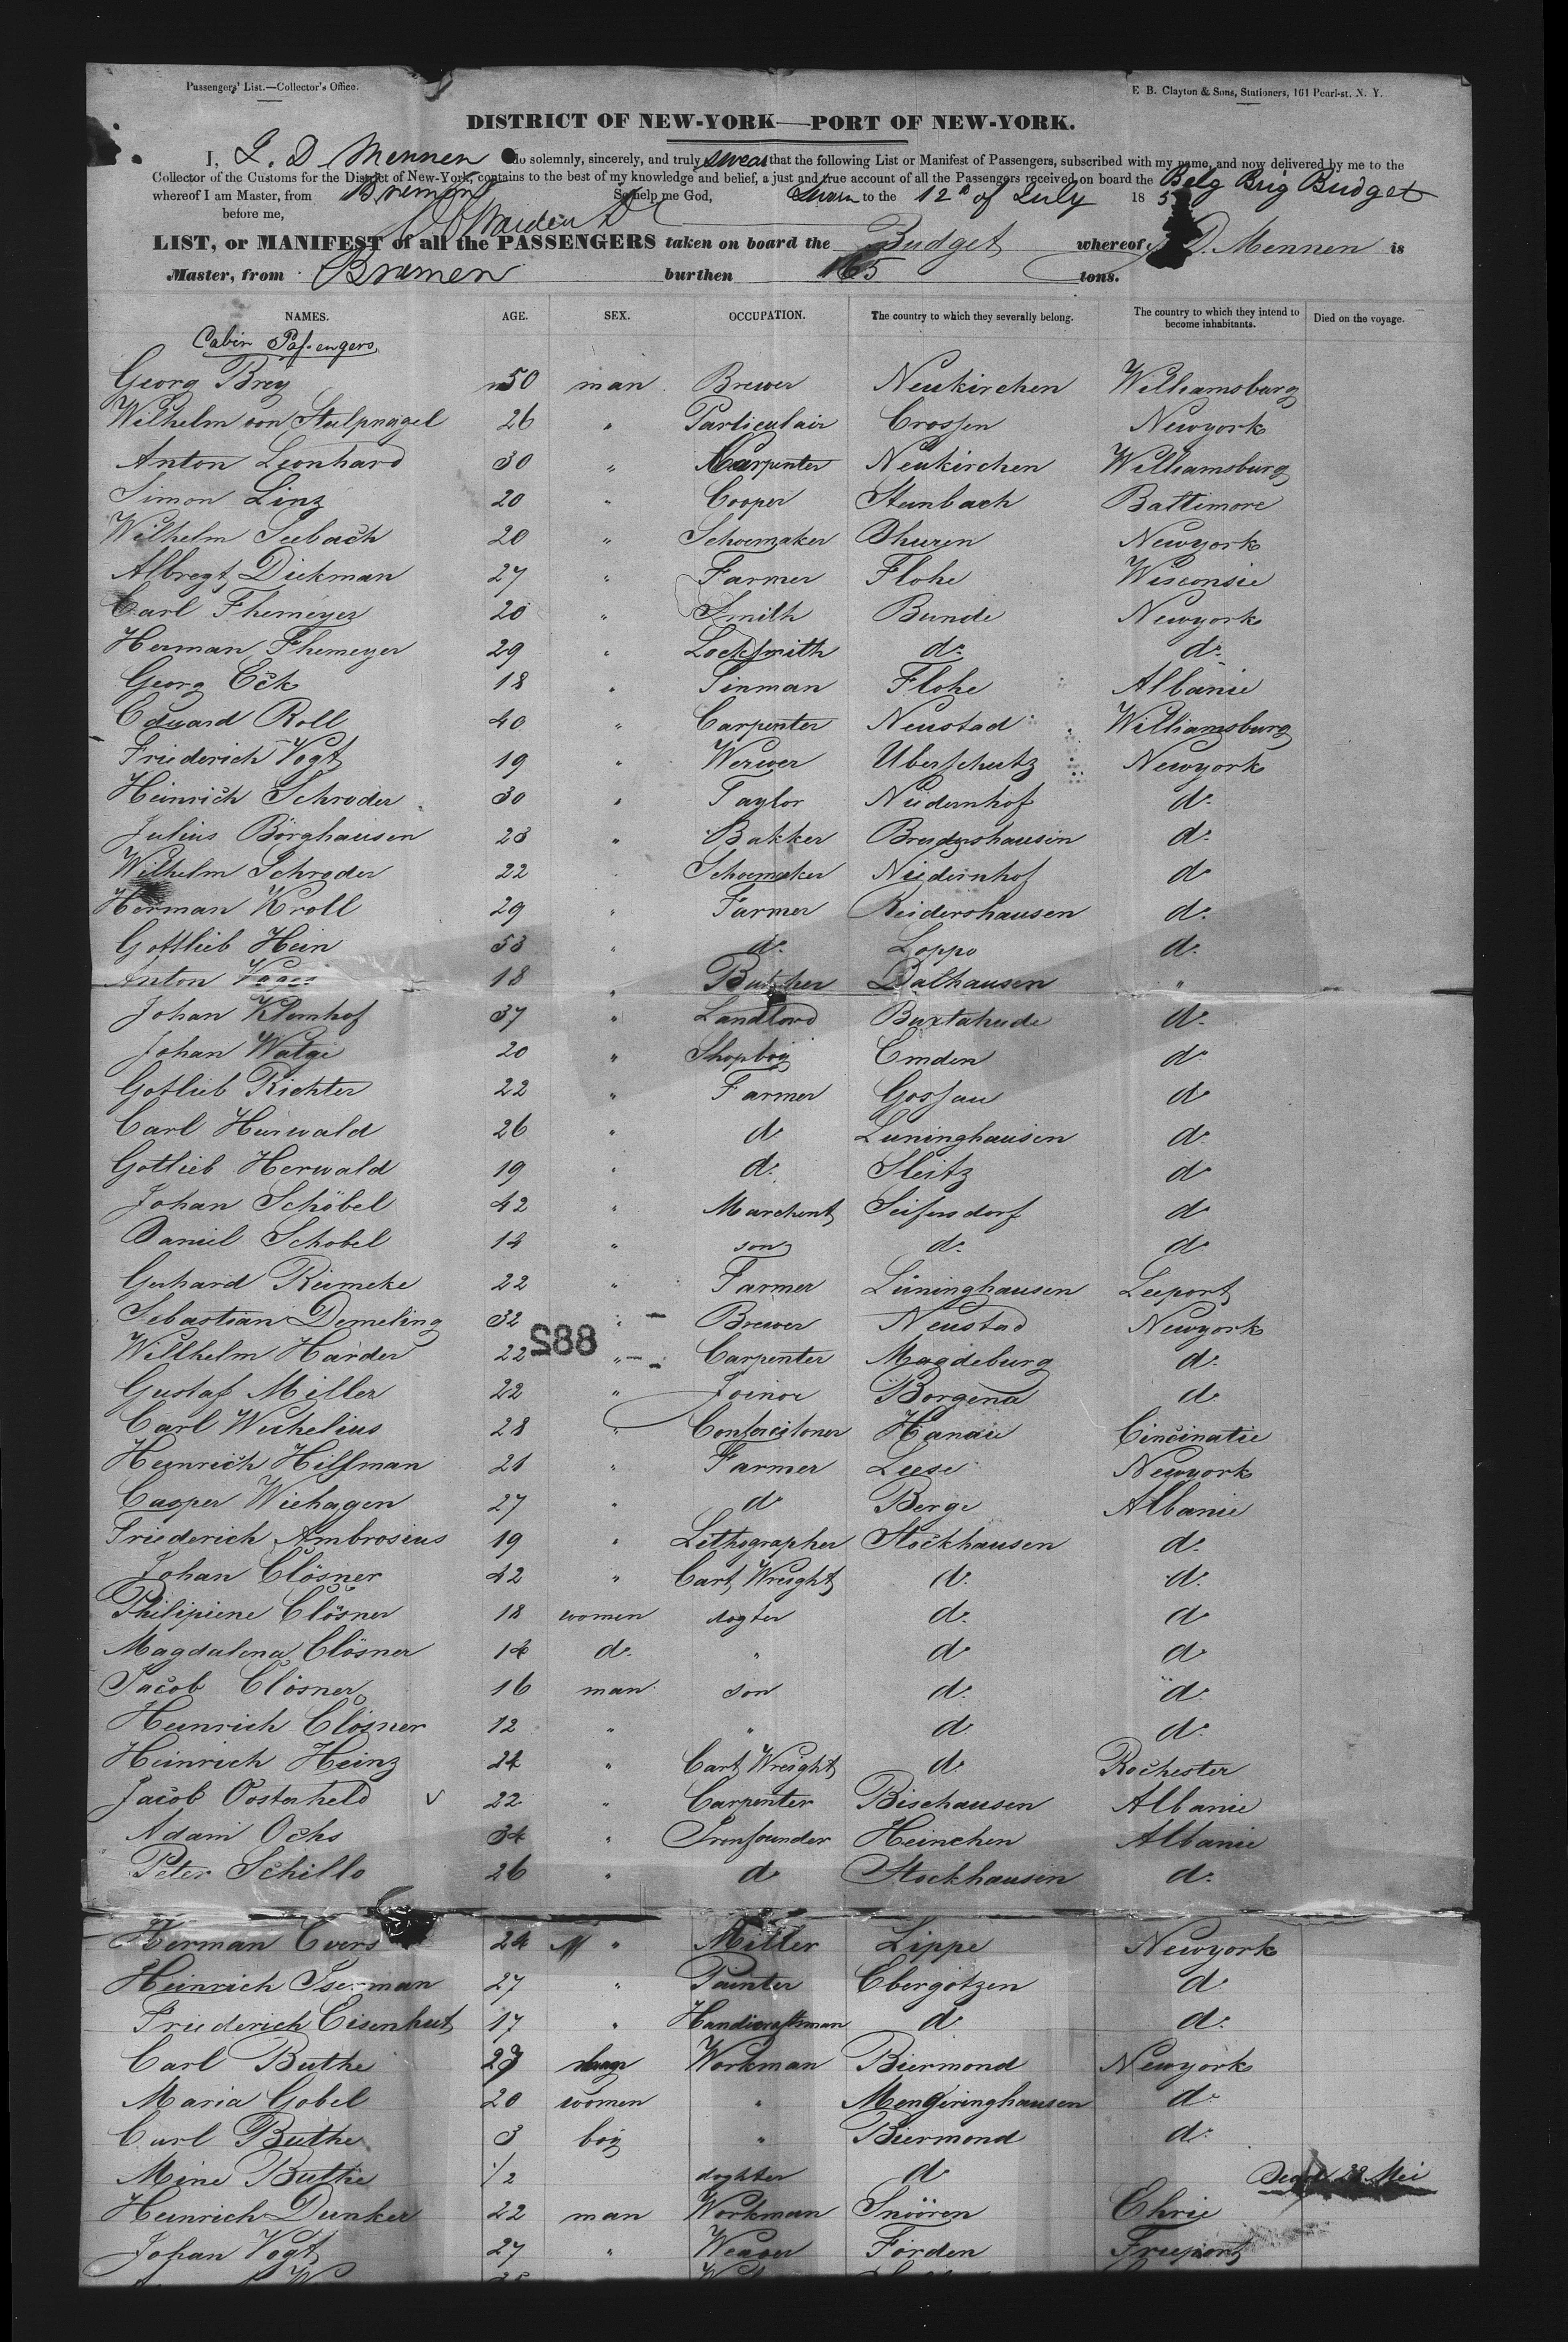 Passengers' List.—Collector's Office.
E. B. Clayton & Sons, Stationers, 161 Pearl-st. N. Y.
DISTRICT OF NEW-YORK—PORT OF NEW-YORK.
I, L. D. Mennen do solemnly, sincerely, and truly swear that the following List or Manifest of Passengers, subscribed with my name, and now delivered by me to the
Collector of the Customs for the District of New-York, contains to the best of my knowledge and belief, a just and true account of all the Passengers received on board the Belg Brig Budget
whereof I am Master, from Bremen So help me God, Sworn to the 12th of July 185
before me,
LIST, or MANIFEST of all the PASSENGERS taken on board the Budget whereof D. Mennen is
Master, from Bremen burthen 165 tons.
NAMES. AGE. SEX. OCCUPATION. The country to which they severally belong. The country to which they intend to become inhabitants. Died on the voyage.
Cabin Passengers
Georg Brey 50 man Brewer Neukirchen Williamsburg
Wilhelm von Stulpnagel 26 " Particulair Crossen Newyork
Anton Leonhard 30 " Carpenter Neukirchen Williamsburg
Simon Linz 20 " Cooper Steinbach Baltimore
Wilhelm Seebach 20 " Schoemaker Bhuren Newyork
Albregt Diekman 27 " Farmer Flohe Wisconsie
Carl Fhemeyer 20 " Smith Bunde Newyork
Herman Fhemeyer 29 " Locksmith do do
Georg Eck 18 " Tinman Flohe Albanie
Eduard Roll 40 " Carpenter Neustad Williamsburg
Friederich Vogt 19 " Werver Uberschutz Newyork
Heinrich Schroder 30 " Taylor Niedernhof do
Julius Börghausen 23 " Bakker Breidershausen do
Wilhelm Schroder 22 " Schoemaker Niedernhof do
Herman Kroll 29 " Farmer Reidershausen do
Gottlieb Hein 53 " do Loppo do
Anton 18 " Butcher Dalhausen "
Johan Klemhof 37 " Landlord Buxtahude do
Johan Watge 20 " Shopboy Emden do
Gotlieb Richter 22 " Farmer Gossau do
Carl Herwald 26 " do Luninghausen do
Gotlieb Herwald 19 " do Sleitz do
Johan Schöbel 42 " Marchent Seifersdorf do
Daniel Schobel 14 " son do do
Gerhard Riemeke 22 " Farmer Lüninghausen Leeport
Sebastian Demeling 32 " Brewer Neustad Newyork
Willhelm Harder 22 " Carpenter Magdeburg do
882
Gustaf Miller 22 " Joinor Borgena do
Carl Wichelius 28 " Confoecitoner Hanau Cincinatie
Heinrich Hilsman 21 " Farmer Leese Newyork
Casper Wiehagen 27 " do Berge Albanie
Friederich Ambrosius 19 " Lithographer Stockhausen do
Johan Clösner 42 " Cart Wreight do do
Philipiene Clösner 18 women dogter do do
Magdalena Clösner 14 do " do do
Jacob Clösner 16 man son do do
Heinrich Clösner 12 " " do do
Heinrich Heinz 24 " Cart Wreight do Rochester
Jacob Oosterheld 22 " Carpenter Bischausen Albanie
Adam Ochs 34 " Ironfounder Heinchen Albanie
Peter Schillo 26 " do Stockhausen do
Herman Evers 24 M " Miller Lippe Newyork
Heinrich Iserman 27 " Painter Ebergotzen do
Friederich Eisenhut 17 " Handicraftman do do
Carl Buthe 27 Workman Biermond Newyork
Maria Gobel 20 women " Mengeringhausen do
Carl Buthe 3 boy " Biermond do
Mine Buthe 1/2 doghter do Dead 28 Mei
Heinrich Dunker 22 man Workman Snöören Ehrie
Johan Vogt 27 " Weaver Forden Freeport